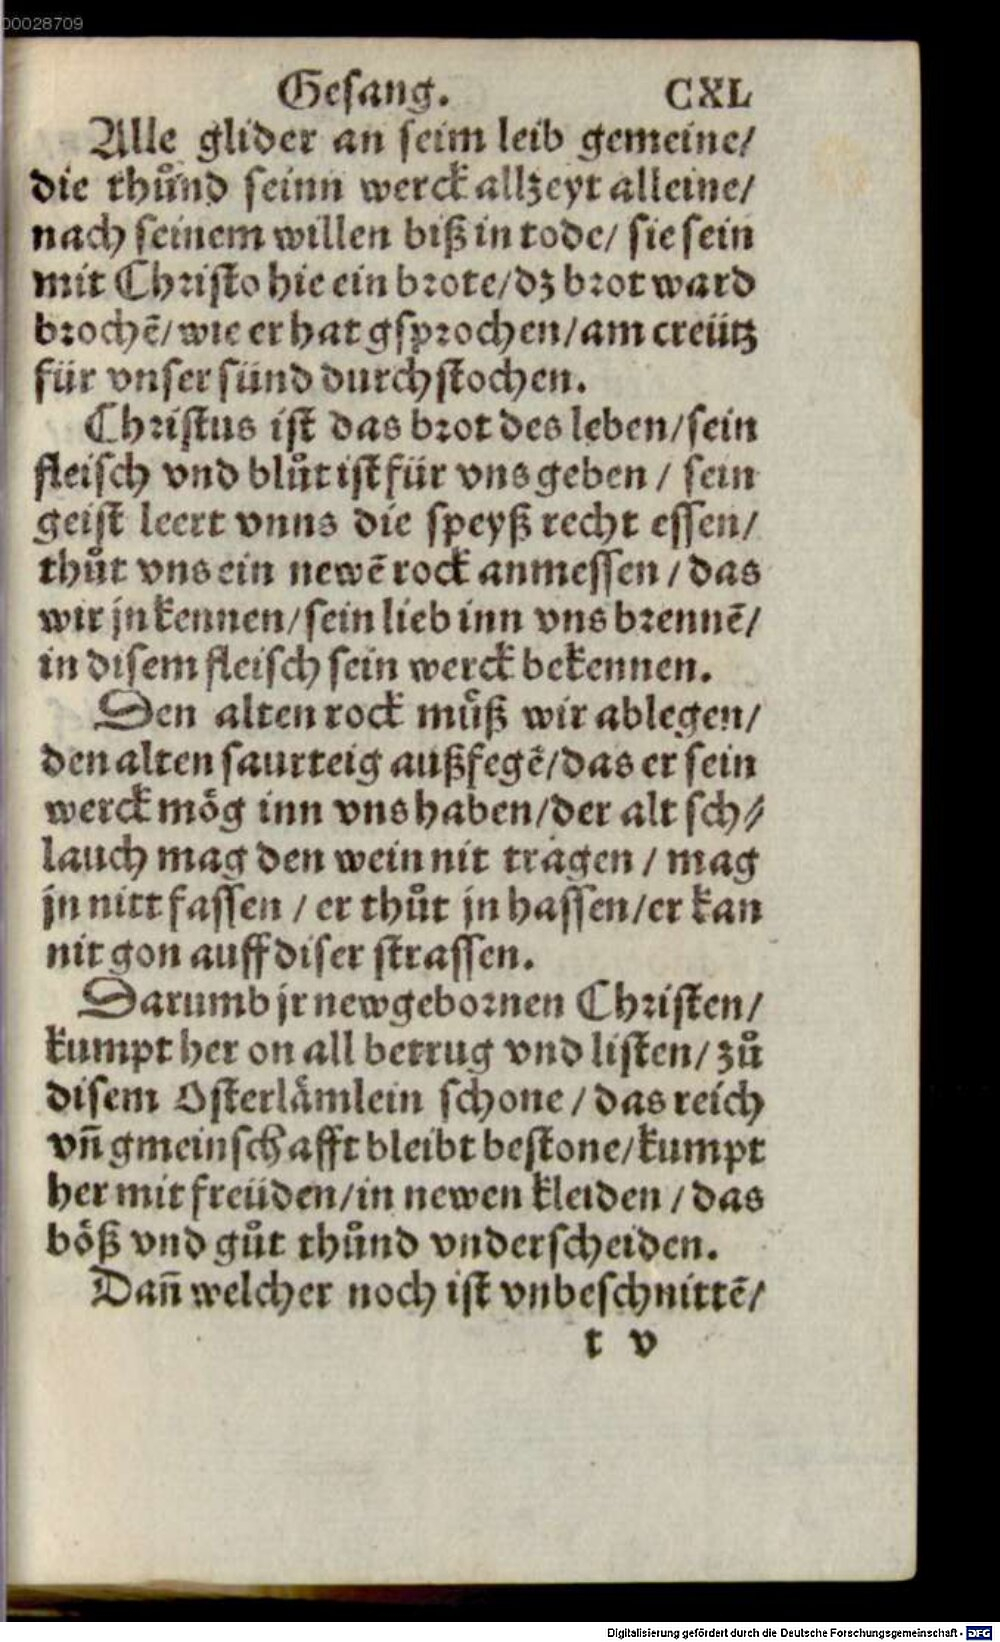 00028709
Gesang. CXL
Alle glider an seim leib gemeine/
die thuͦnd seinn werck allzeyt alleine/
nach seinem willen biß in tode/ sie sein
mit Christo hie ein brote/dz brot ward
brochẽ/wie er hat gsprochen/am creütz
für vnser sünd durchstochen.
Christus ist das brot des leben/sein
fleisch vnd bluͦt ist für vns geben / sein
geist leert vnns die speyß recht essen/
thuͦt vns ein newẽ rock anmessen / das
wir jn kennen/sein lieb inn vns brennẽ/
in disem fleisch sein werck bekennen.
Den alten rock muͤß wir ablegen/
den alten saurteig außfegẽ/das er sein
werck moͤg inn vns haben/der alt sch⸗
lauch mag den wein nit tragen / mag
jn nitt fassen / er thuͦt jn hassen/er kan
nit gon auff diser strassen.
Darumb jr newgebornen Christen/
kumpt her on all betrug vnd listen/ zuͦ
disem Osterlämlein schone / das reich
vn̄ gmeinschafft bleibt bestone/kumpt
her mit freüden/in newen kleiden / das
boͤß vnd guͦt thuͦnd vnderscheiden.
Dan̄ welcher noch ist vnbeschnittẽ/
t v
Digitalisierung gefördert durch die Deutsche Forschungsgemeinschaft - DFG